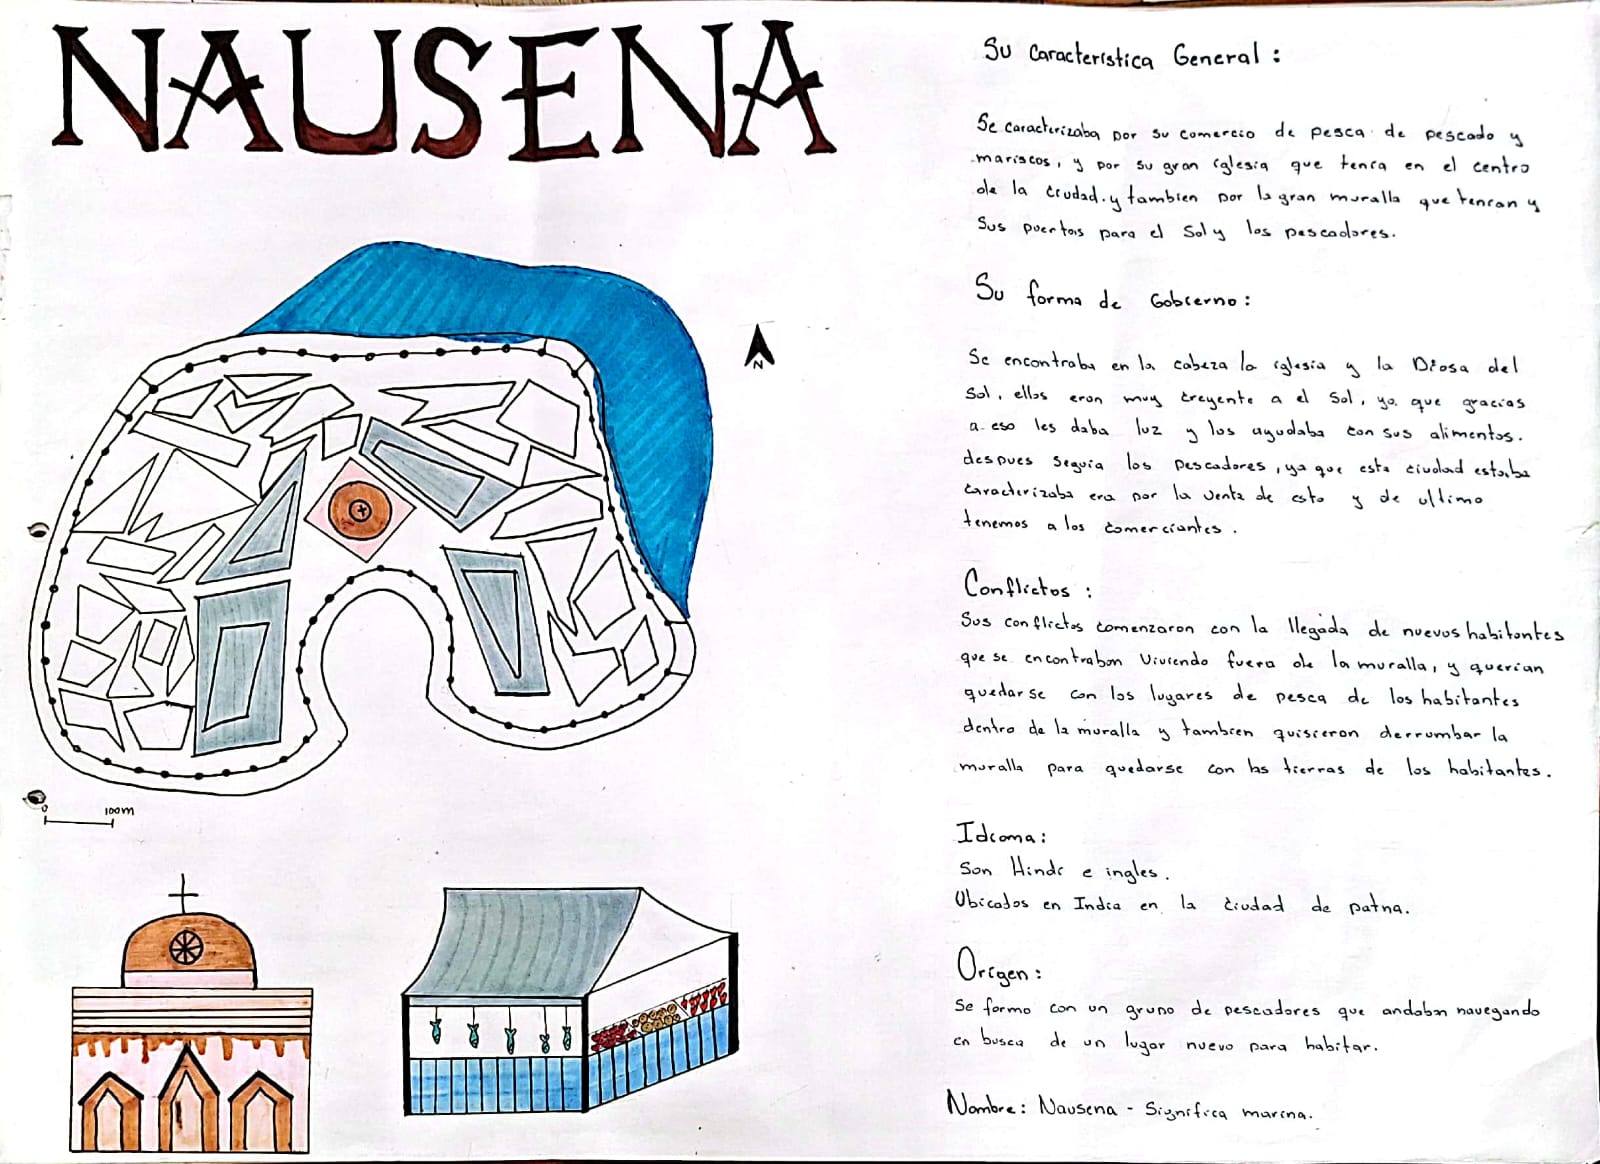 NAUSENA
N
0 100m
Su Característica General:
Se caracterizaba por su comercio de pesca de pescado y
mariscos, y por su gran iglesia que tenía en el centro
de la ciudad. y tambien por la gran muralla que tenían y
Sus puertas para el Sol y los pescadores.
Su forma de Gobierno:
Se encontraba en la cabeza la iglesia y la Diosa del
Sol, ellos eron muy creyente a el Sol, ya que gracias
a eso les daba luz y los ayudaba con sus alimentos.
despues seguia los pescadores, ya que esta ciudad estaba
caracterizaba era por la venta de esto y de ultimo
tenemos a los comerciantes.
Conflictos:
Sus conflictos comenzaron con la llegada de nuevos habitantes
que se encontrabon viviendo fuera de la muralla, y querían
quedarse con los lugares de pesca de los habitantes
dentro de la muralla y tambien quisieron derrumbar la
muralla para quedarse con las tierras de los habitantes.
Idioma:
Son Hindi e ingles.
Ubicados en India en la ciudad de patna.
Origen:
Se formo con un grupo de pescadores que andaban navegando
en busca de un lugar nuevo para habitar.
Nombre: Nausena - Significa marina.